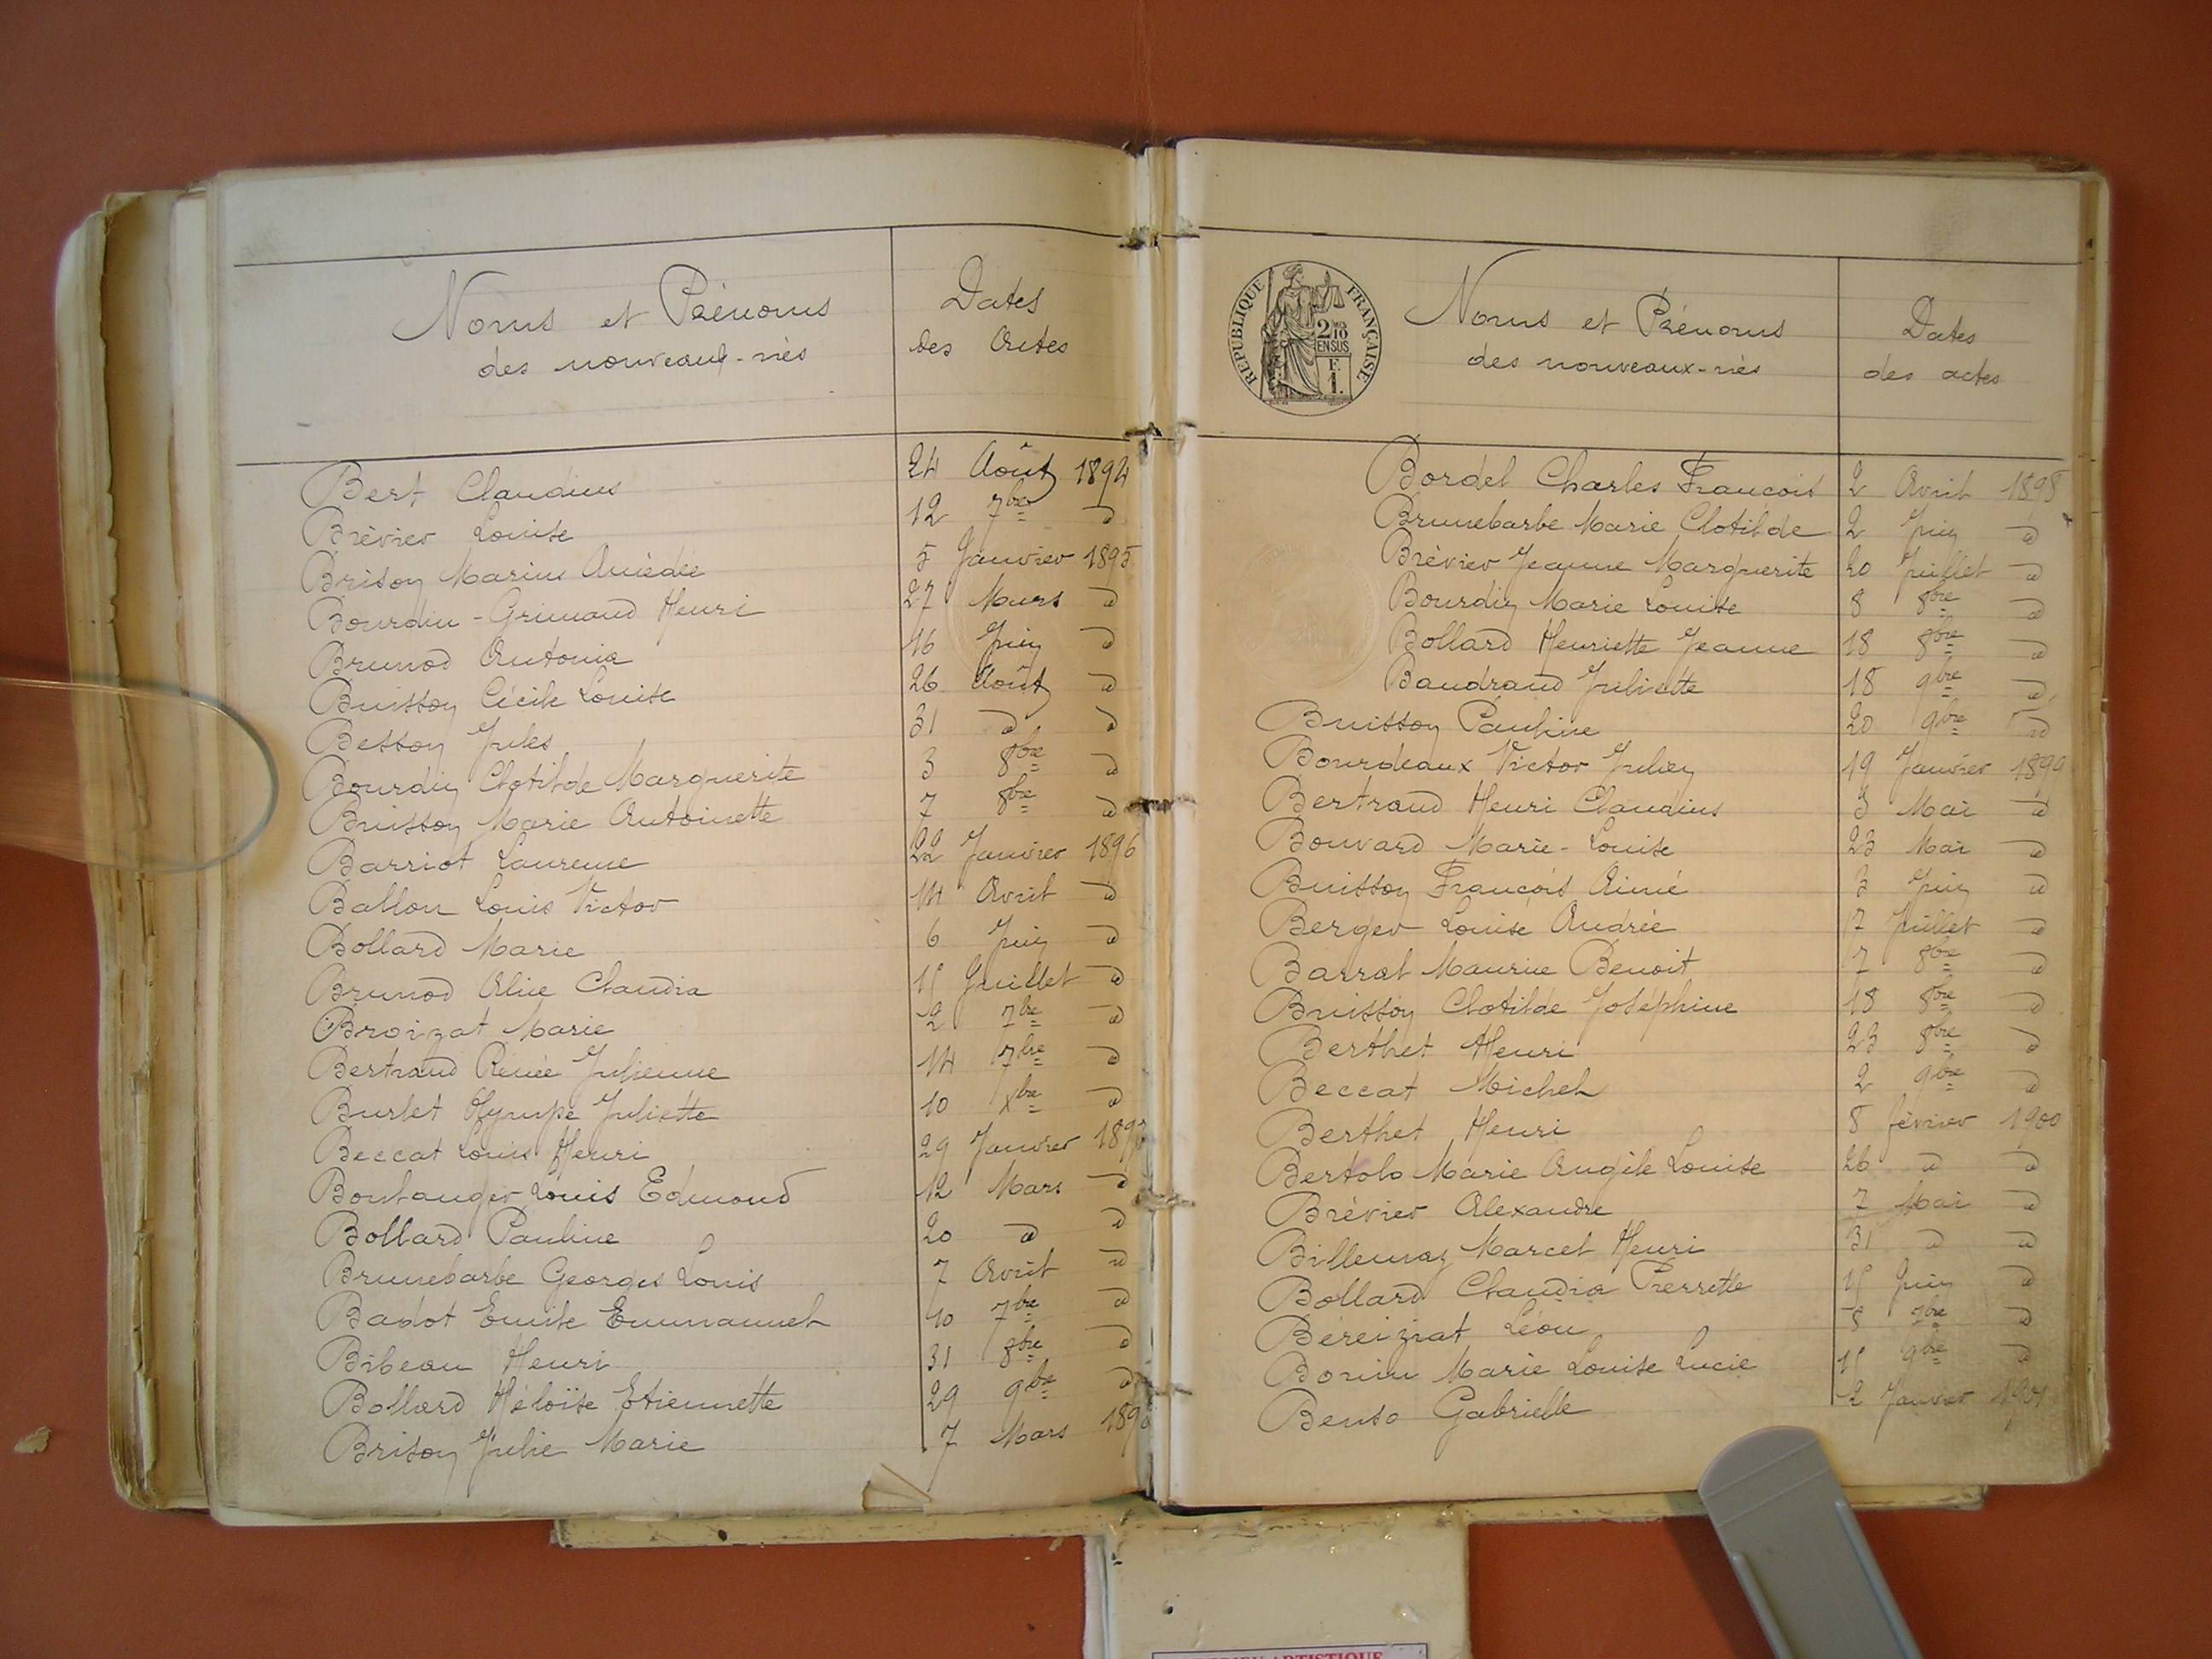 Noms et Prénoms
des nouveaux-nés
Dates
des Actes
Bert Claudius 24 Août 1894
Brévier Louise 12 7bre d
Brison Marius Amédée 5 Janvier 1895
Bourdin-Grimaud Henri 27 Mars d
Brunod Antonia 16 Juin d
Buisson Cécile Louise 26 Août d
Besson Jules 31 d d
Bourdin Clotilde Marguerite 3 8bre d
Buisson Marie Antoinette 7 8bre d
Barriot Laurence 22 Janvier 1896
Ballon Louis Victor 14 Avril d
Bollard Marie 6 Juin d
Brunod Alice Claudia 15 Juillet d
Broizat Marie 2 7bre d
Bertrand Renée Julienne 14 7bre d
Burlet Olympe Juliette 10 Xbre d
Beccat Louis Henri 29 Janvier 1897
Boulanger Louis Edmond 12 Mars d
Bollard Pauline 20 d d
Brunebarbe Georges Louis 7 Avril d
Badot Emile Emmanuel 10 7bre d
Bibeau Henri 31 8bre d
Bollard Héloïse Etiennette 29 9bre d
Brison Julie Marie 7 Mars
RÉPUBLIQUE FRANÇAISE
2 10
EN SUS
F.
1.
Noms et Prénoms
des nouveaux-nés
Dates
des actes
Bordel Charles François 2 Avril 1898
Brunebarbe Marie Clotilde 2 Juin d
Brévier Jeanne Marguerite 20 Juillet d
Bourdin Marie Louise 8 8bre d
Bollard Henriette Jeanne 18 8bre d
Baudrand Juliette 18 9bre d
Buisson Pauline 20 9bre d
Bourdeaux Victor Julien 19 Janvier 1899
Bertrand Henri Claudius 3 Mai d
Bouvard Marie-Louise 23 Mai d
Buisson François Aimé 3 Juin d
Berger Louise Andrée 17 Juillet d
Barral Maurice Benoit 7 8bre d
Buisson Clotilde Joséphine 18 8bre d
Berthet Henri 23 8bre d
Beccat Michel 2 9bre d
Berthet Henri 8 février 1900
Bertolo Marie Angèle Louise 26 d d
Brévier Alexandre 7 Mai d
Billemaz Marcel Henri 31 d d
Bollard Claudia Pierrette 15 Juin d
Béreiziat Léon 8 7bre d
Bonin Marie Louise Lucie 15 9bre d
Benso Gabrielle 2 Janvier 1901
ARTISTIQUE